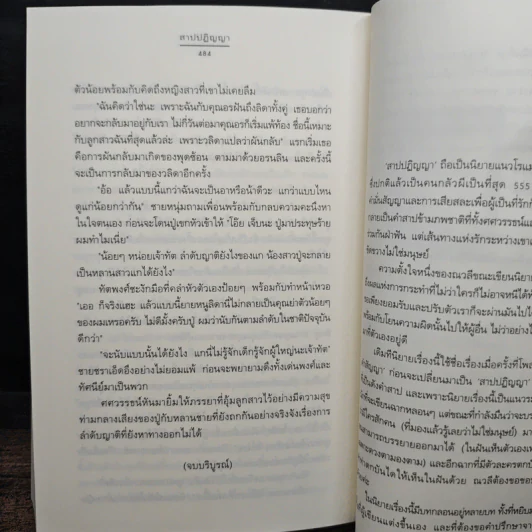 สาปปฏิญญา
484
ตัวน้อยพร้อมกับคิดถึงหญิงสาวที่เขาไม่เคยลืม
"ฉันคิดว่าใช่นะ เพราะฉันกับคุณอรฝันถึงลิดาทั้งคู่ เธอบอกว่า
อยากจะกลับมาอยู่กับเรา ไม่กี่วันต่อมาคุณอรก็เริ่มแพ้ท้อง ชื่อนี้เหมาะ
กับลูกสาวฉันที่สุดแล้วล่ะ เพราะวลิดาแปลว่าผันกลับ" แรกเริ่มเธอ
คือการผันกลับมาเกิดของพุดซ้อน ตามมาด้วยอรนลิน และครั้งนี้
จะเป็นการกลับมาของวลิดาอีกครั้ง
"อ้อ แล้วแบบนี้แกว่าฉันจะเป็นอาหรือน้าดีวะ แกว่าแบบไหน
ดูแก่น้อยกว่ากัน" ชายหนุ่มถามเพื่อนพร้อมกับกลบความคะนึงหา
ในใจตนเอง ก่อนจะโดนปู่เขกหัวเข้าให้ "โอ๊ย เจ็บนะ ปู่มาประทุษร้าย
ผมทำไมเนี่ย"
"น้อยๆ หน่อยเจ้าทัต ลำดับญาติยังไงของแก น้องสาวปู่จะกลาย
เป็นหลานสาวแกได้ยังไง"
ทัตพงศ์ชะงักมือที่คลำหัวตัวเองป้อยๆ พร้อมกับทำหน้าเหวอ
"เออ ก็จริงแฮะ แล้วแบบนี้ยายหนูลิดานี่ไม่กลายเป็นคุณย่าตัวน้อยๆ
ของผมเหรอครับ ไม่ดีมั้งครับปู่ ผมว่านับกันตามลำดับในชาติปัจจุบัน
ดีกว่า"
"จะนับแบบนั้นได้ยังไง แกนี่ไม่รู้จักเด็กรู้จักผู้ใหญ่นะเจ้าทัต"
ชายชราเอ็ดอึงอย่างไม่ยอมแพ้ ก่อนจะพยายามดึงทั้งเด่นพงศ์และ
ทัศนีย์มาเป็นพวก
ศศวรรธน์หันมายิ้มให้ภรรยาที่อุ้มลูกสาวไว้อย่างมีความสุข
ท่ามกลางเสียงของปู่กับหลานชายที่ยังถกกันอย่างจริงจังเรื่องการ
ลำดับญาติที่ยังหาทางออกไม่ได้
(จบบริบูรณ์)
'สาปปฏิญญา' ถือเป็นนิยายแนวโรแม
ซึ่งปกติแล้วเป็นคนกลัวผีเป็นที่สุด 555
คำมั่นสัญญาและการเสียสละเพื่อผู้เป็นที่รักที่
กลายเป็นคำสาปข้ามภพชาติที่ทั้งศศวรรธน์แ
ร่วมกันฝ่าฟัน แต่เส้นทางแห่งรักระหว่างเขาแ
ขัดขวางไม่ใช่มนุษย์
ความตั้งใจหนึ่งของณวลีขณะเขียนนิยาย
ผลแห่งการกระทำที่ไม่ว่าใครก็ไม่อาจหนีได้พ้
เพียงยอมรับและปรับตัวเราก็จะผ่านมันไปไ
พร้อมกับโยนความผิดนั้นไปให้ผู้อื่น ไม่ว่าอย่างไ
ที่ตัวเองอยู่ดี
เดิมทีนิยายเรื่องนี้ใช้ชื่อเรื่องเมื่อครั้งที่โพส
คำสัญญา' ก่อนจะเปลี่ยนมาเป็น 'สาปปฏิญญา'
เป็นดังคำสาป และเพราะนิยายเรื่องนี้เป็นแนวร
ที่จะเขียนฉากหลอนๆ แต่ขณะที่กำลังมึนว่าจะบร
มีใครสักคน (ที่มองแล้วรู้เลยว่าไม่ใช่มนุษย์) มา
สามารถบรรยายออกมาได้ (ในฝันเห็นตัวเองเ
และอีกฉากที่มีตัวละครตก
ตกบันไดให้เห็นในฝันด้วย ณวลีต้องขอขอ
ในนิยายเรื่องนี้มีบทกลอนอยู่หลายบท ทั้งที่หยิบ
ผู้เขียนแต่งขึ้นเอง และที่ต้องขอคำปรึกษาจา